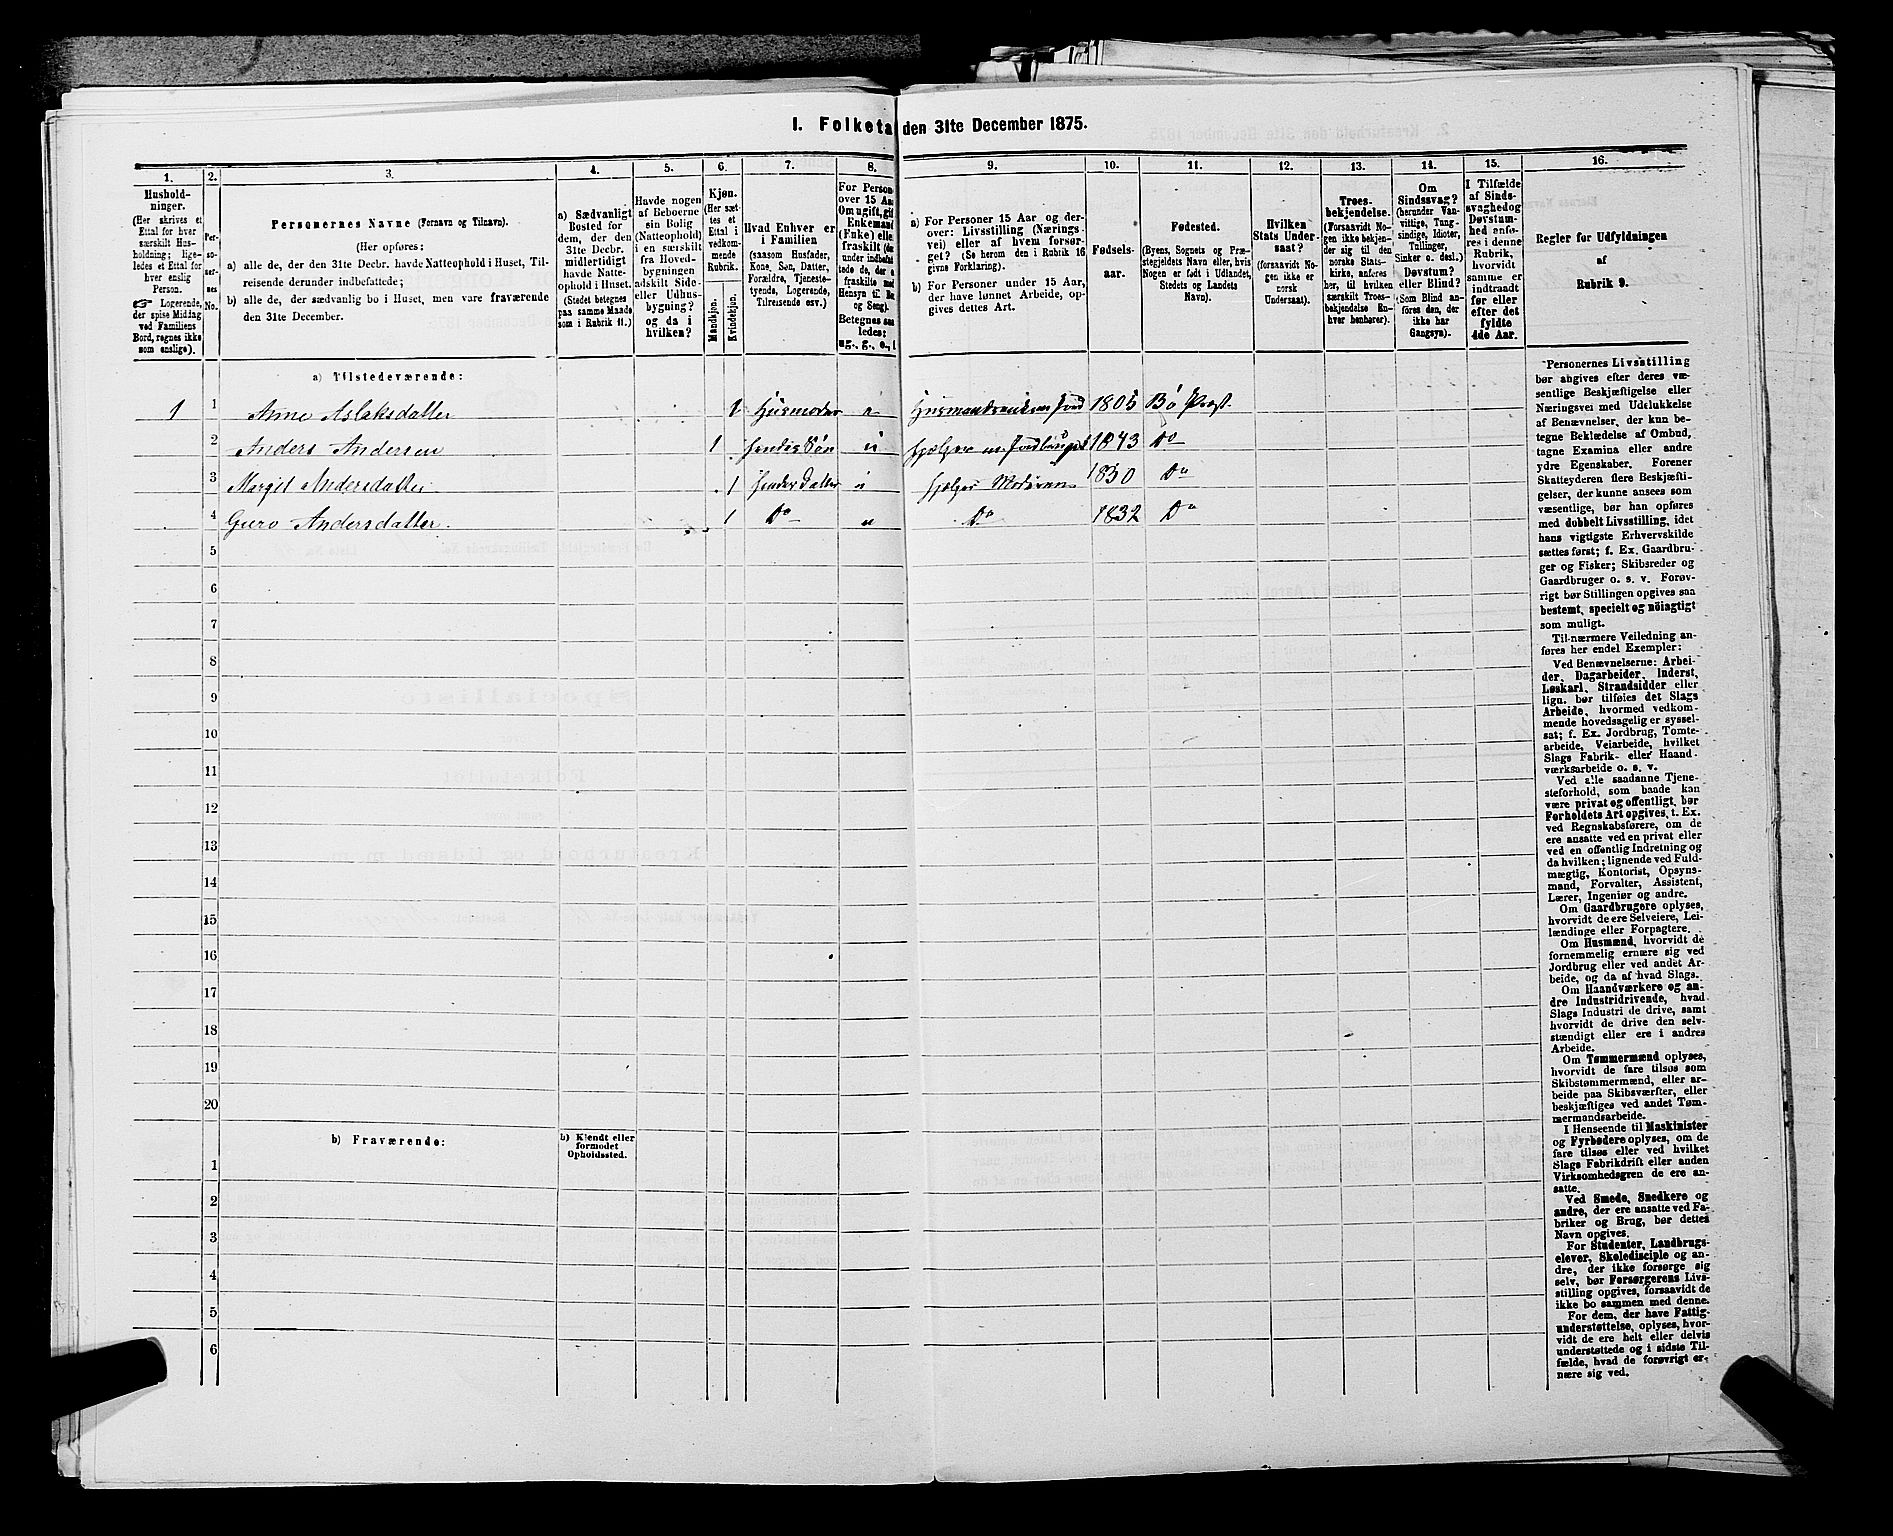 1. Folketa den 31te December 1875.
1.
2.
3.
4.
5.
6.
7.
8.
9.
10.
11.
12.
13.
14.
15.
16.
Hushold-
ninger.
(Her skrives et
Ettal for hver
særskilt Hus-
holdning; lige-
ledes et Ettal for
hver enslig
Person.
☞ Logerende,
der spise Middag
ved Familiens
Bord, regnes ikke
som enslige).
Per-
so-
ner-
nes
No.
Personernes Navne (Fornavn og Tilnavn).
(Her opføres:
a) alle de, der den 31te Decbr. havde Natteophold i Huset, Til-
reisende derunder indbefattede;
b) alle de, der sædvanlig bo i Huset, men vare fraværende
den 31te December.
a) Sædvanligt
Bosted for
dem, der den
31te Decbr.
midlertidigt
havde Natte-
ophold i Huset.
(Stedet betegnes
paa samme Maade
som i Rubrik 11.)
Havde nogen
af Beboerne
sin Bolig
(Natteophold)
i en særskilt
fra Hoved-
bygningen
adskilt Side-
eller Udhus-
bygning?
og da i
hvilken?
Kjøn.
(Her sæt-
tes et
Ettal i
vedkom-
mende
Rubrik.
Mandkjøn.
Kvindekjøn.
Hvad Enhver er
i Familien
(saasom Husfader,
Kone, Søn, Datter,
Forældre, Tjeneste-
tyende, Logerende,
Tilreisende osv.)
For Person
over 15 Aa
Om ugift, gif
Enkemand
(Enke) elle
fraskilt (de
under indbefat
tede de, der e
fraskilte med
Hensyn til Bo
og Seng).
Betegnes saa
ledes:
ug., g., e.,
a) For Personer 15 Aar og der-
over: Livsstilling (Nærings-
vei) eller af hvem forsør-
get? (Se herom den i Rubrik 16
givne Forklaring).
b) For Personer under 15 Aar,
der have lønnet Arbeide, op-
gives dettes Art.
Fødsels-
aar.
Fødested.
(Byens, Sognets og Præ-
stegjeldets Navn eller, hvis
Nogen er født i Udlandet,
Stedets og Landets
Navn).
Hvilken
Stats Under-
saat?
(forsaavidt No-
gen ikke er
norsk
Undersaat).
Troes-
bekjendelse.
(Forsaavidt No-
gen ikke bekjen-
der sig til den
norske Stats-
kirke, anføres
her, til hvilken
særskilt Troes-
bekjendelse En-
hver henhører).
Om
Sindssvag?
(herunder Van-
vittige, Tung-
sindige, Idioter,
Tullinger,
Sinker o. desl.).
Døvstum?
eller Blind?
(Som Blind an-
føres den, der
ikke har
Gangsyn).
I Tilfælde
af Sinds-
svaghed og
Døvstum-
hed anfø-
res i denne
Rubrik,
hvorvidt
samme er
indtraadt
før eller
efter det
fyldte
4de Aar.
Regler for Udfyldningen
af
Rubrik 9.
a) Tilstedeværende:
1 1 Anne Aslaksdatter 1 Husmoder 1805 Bø Præst
2 Anders Andersen 1 hendes Søn 1843 Do
3 Margit Andersdatter 1 hendes Datter hjelper Moderen 1830 Do
4 Guro Andersdatter 1 Do Do 1832 Do
5
6
7
8
9
10
11
12
13
14
15
16
17
18
19
20
b) Fraværende:
b) Kjendt eller
formodet
Opholdssted.
1
2
3
4
5
6
Personernes Livsstilling
bør angives efter deres væ-
sentlige Beskjæftigelse eller
Næringsvei med Udelukkelse
af Benævnelser, der kun be-
tegne Beklædelse af Ombud,
tagne Examina eller andre
ydre Egenskaber. Forener
Skatteyderen flere Beskjæfti-
gelser, der kunne ansees som
væsentlige, bør han opføres
med dobbelt Livsstilling, idet
hans vigtigste Erhvervskilde
sættes først; f. Ex. Gaardbru-
ger og Fisker; Skibsreder og
Gaardbruger o. s. v. Forøv-
rigt bør Stillingen opgives saa
bestemt, specielt og nøiagtigt
som muligt.
Til nærmere Veiledning an-
føres her endel Exempler:
Ved Benævnelserne: Arbei-
der, Dagarbeider, Inderst,
Løskarl, Strandsidder eller
lign. bør tilføies det Slags
Arbeide, hvormed vedkom-
mende hovedsagelig er syssel-
sat; f. Ex. Jordbrug, Tomte-
arbeide, Veiarbeide, hvilket
Slags Fabrik- eller Haand-
værksarbeide o. s. v.
Ved alle saadanne Tjene-
steforhold, som baade kan
være privat og offentligt, bør
Forholdets Art opgives, t. Ex.
ved Regnskabsførere, om de
ere ansatte ved en privat eller
ved en offentlig Indretning og
da hvilken; lignende ved Fuld-
mægtig, Kontorist, Opsyns-
mand, Forvalter, Assistent,
Lærer, Ingeniør og andre.
Om Gaardbrugere oplyses,
hvorvidt de ere Selveiere, Lei-
lændinge eller Forpagtere.
Om Husmænd, hvorvidt de
fornemmelig ernære sig ved
Jordbrug eller ved andet Ar-
beide, og da af hvad Slags.
Om Haandværkere og an-
dre Industridrivende, hvad
Slags Industri de drive, samt
hvorvidt de drive den selv-
stændigt eller ere i andres
Arbeide.
Om Tømmermænd oplyses,
hvorvidt de fare tilsøs som
Skibstømmermænd, eller ar-
beide paa Skibsværfter, eller
beskjæftiges ved andet Tøm-
mermandsarbeide.
I Henseende til Maskinister
og Fyrbødere oplyses, om de
fare tilsøs eller ved hvilket
Slags Fabrikdrift eller anden
Virksomhedsgren de ere an-
satte.
Ved Smede, Snedkere og
andre, der ere ansatte ved Fa-
briker og Brug, bør dettes
Navn opgives.
For Studenter, Landbrugs-
elever, Skoledisciple og an-
dre, der ikke forsørge sig
selv, bør Forsørgerens Livs-
stilling opgives, forsaavidt de
ikke bo sammen med denne.
For dem, der have Fattig-
understøttelse, oplyses, hvor-
vidt de ere helt eller delvis
understøttede og i sidste Til-
fælde, hvad de forøvrigt er-
nære sig ved.